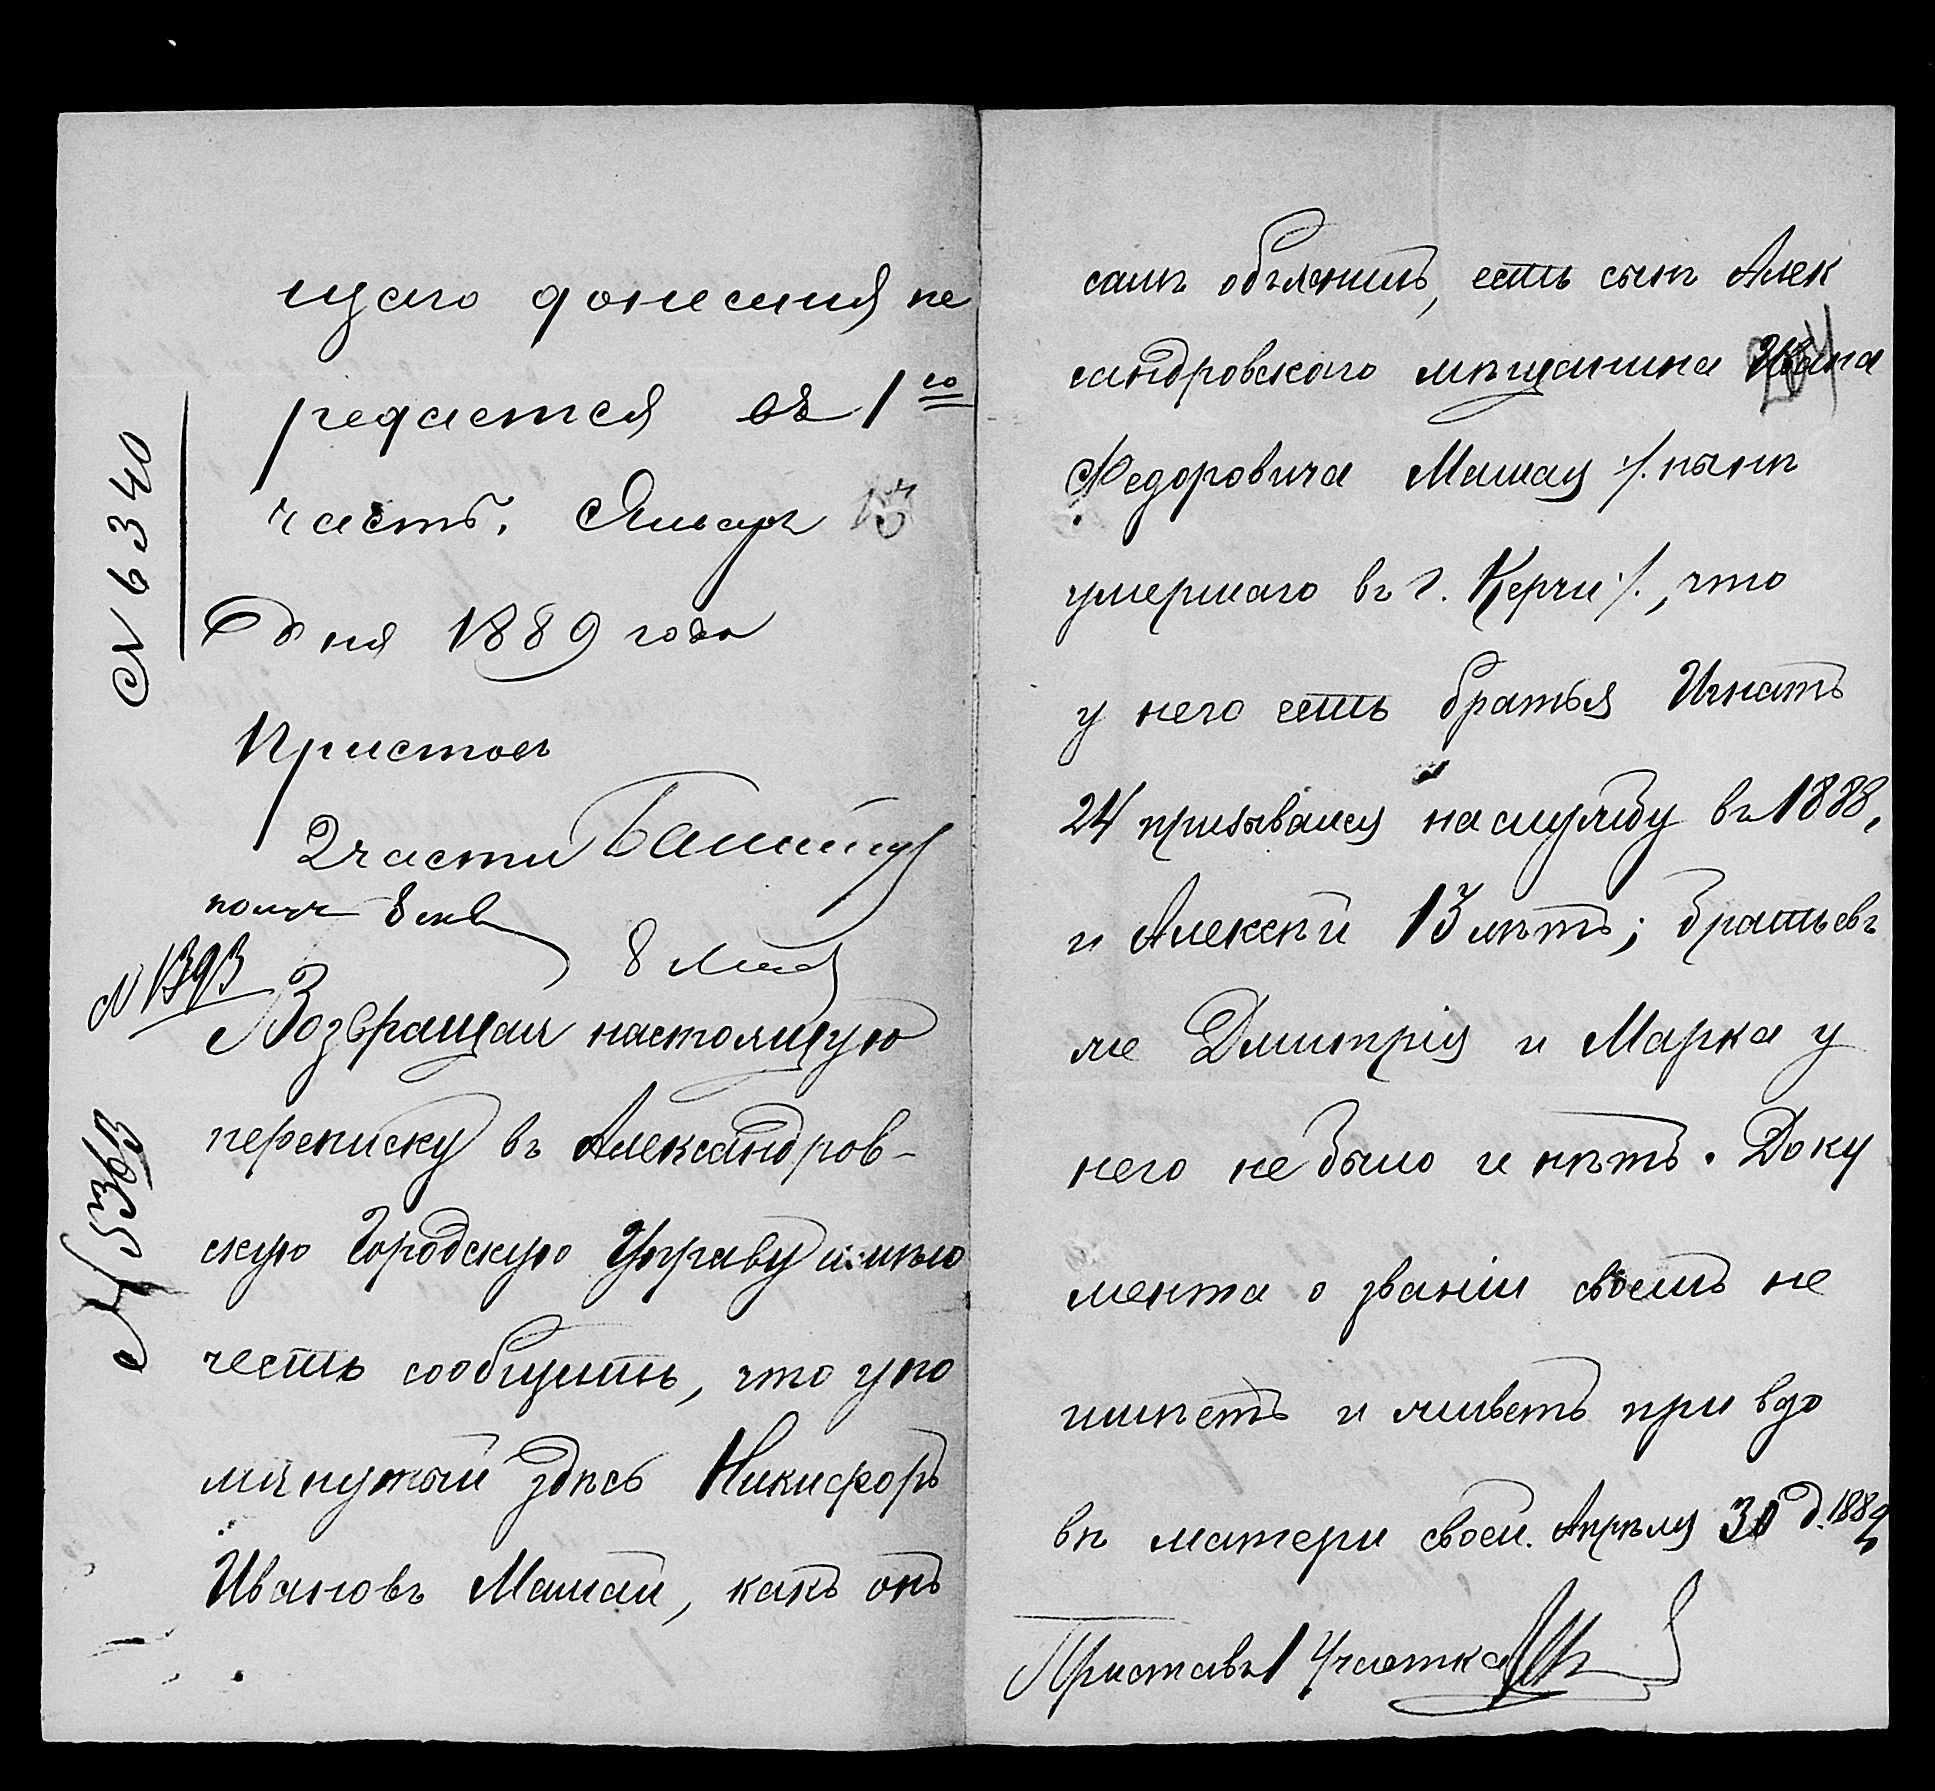 щаго донесенія пе
редается въ 1го
часть. Января
6 дня 1889 года
№ 6340
Приставъ
2 части
получ 8 янв
8 Мая
№ 1393
№ 5363
Возвращая настоящую
переписку въ Александров-
скую Городскую Управу имѣю
честь сообщить, что упо
мянутый здѣсь Никифоръ
Ивановъ Мамай, какъ онъ
самъ объяснилъ, есть сынъ Алек
сандровскаго мѣщанина Ивана
Федоровича Мамая /. нынѣ
умершаго въ г. Керчи /., что
у него есть братья Игнатъ
24 призывался на службу въ 1888,
и Алексѣй 13 лѣтъ; братьевъ
же Дмитрія и Марка у
него не было и нѣтъ. Доку
мента о званіи своемъ не
имѣетъ и живетъ при вдо
вѣ матери своей. Апрѣля 30 д. 1889
Приставъ 1 Участка